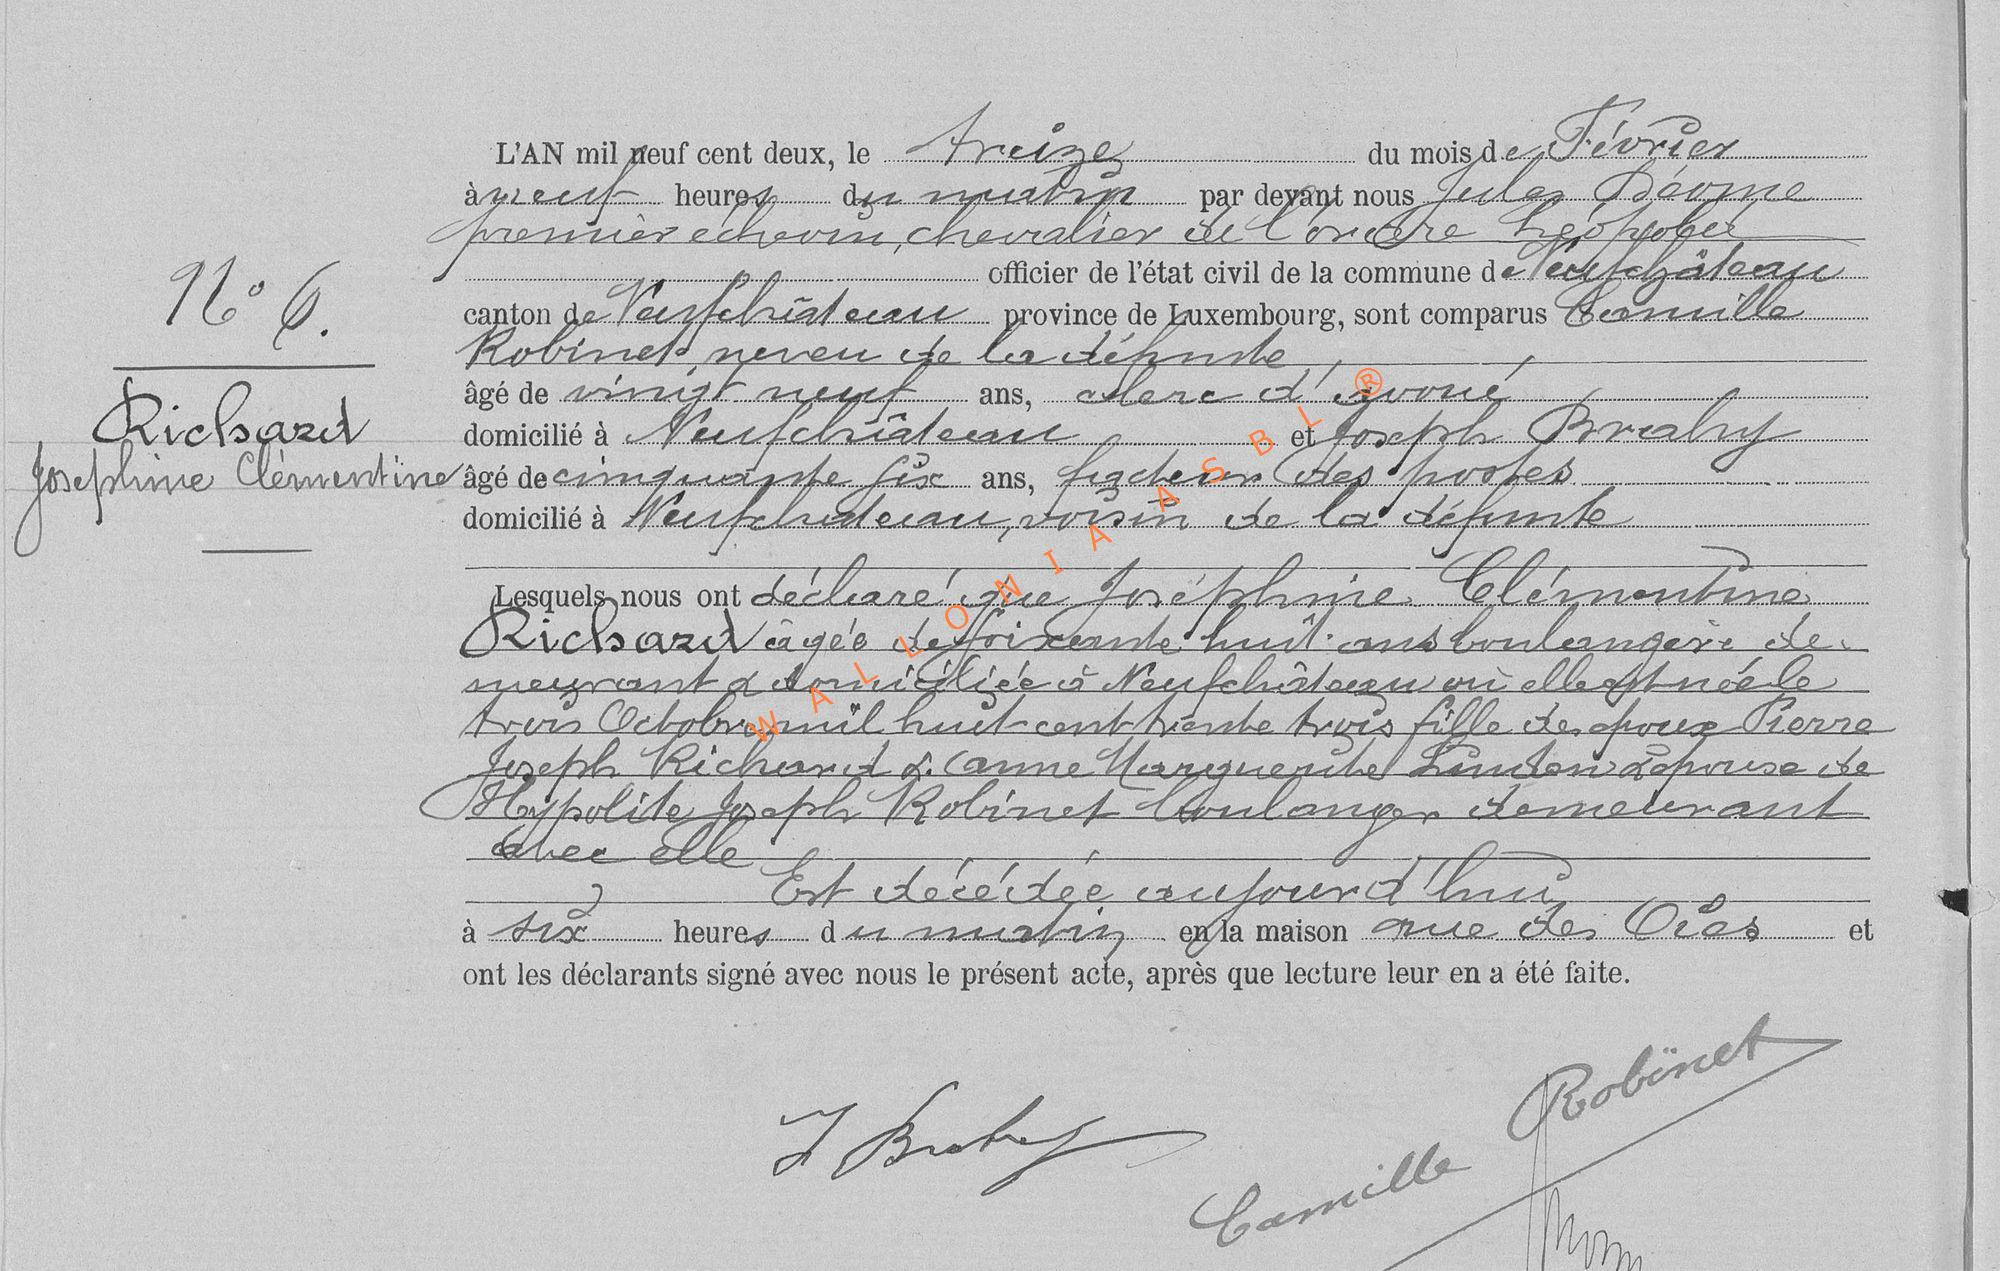 L'AN mil neuf cent deux, le treize du mois de Février
à neuf heures du matin par devant nous Jules
premier échevin, chevalier de l'ordre Léopold
officier de l'état civil de la commune de Neufchâteau
N° 6.
canton de Neufchâteau province de Luxembourg, sont comparus Camille
Robinet neveu de la défunte
âgé de vingt neuf ans, clerc d'avoué
Richard
domicilié à Neufchâteau et Joseph Brahy
Joséphine Clémentine
âgé de cinquante six ans, facteur des postes
domicilié à Neufchâteau, voisin de la défunte
Lesquels nous ont déclaré que Joséphine Clémentine
Richard âgée de soixante huit ans boulangère de
meurant & domiciliée à Neufchâteau où elle est née le
trois Octobre mil huit cent trente trois fille des époux Pierre
Joseph Richard & Anne Marguerite épouse de
Hypolite Joseph Robinet boulanger demeurant
avec elle
Est décédée aujourd'hui
à six heures du matin en la maison rue des et
ont les déclarants signé avec nous le présent acte, après que lecture leur en a été faite.
J Brahy
Camille Robinet
WALLONIA ASBL ®